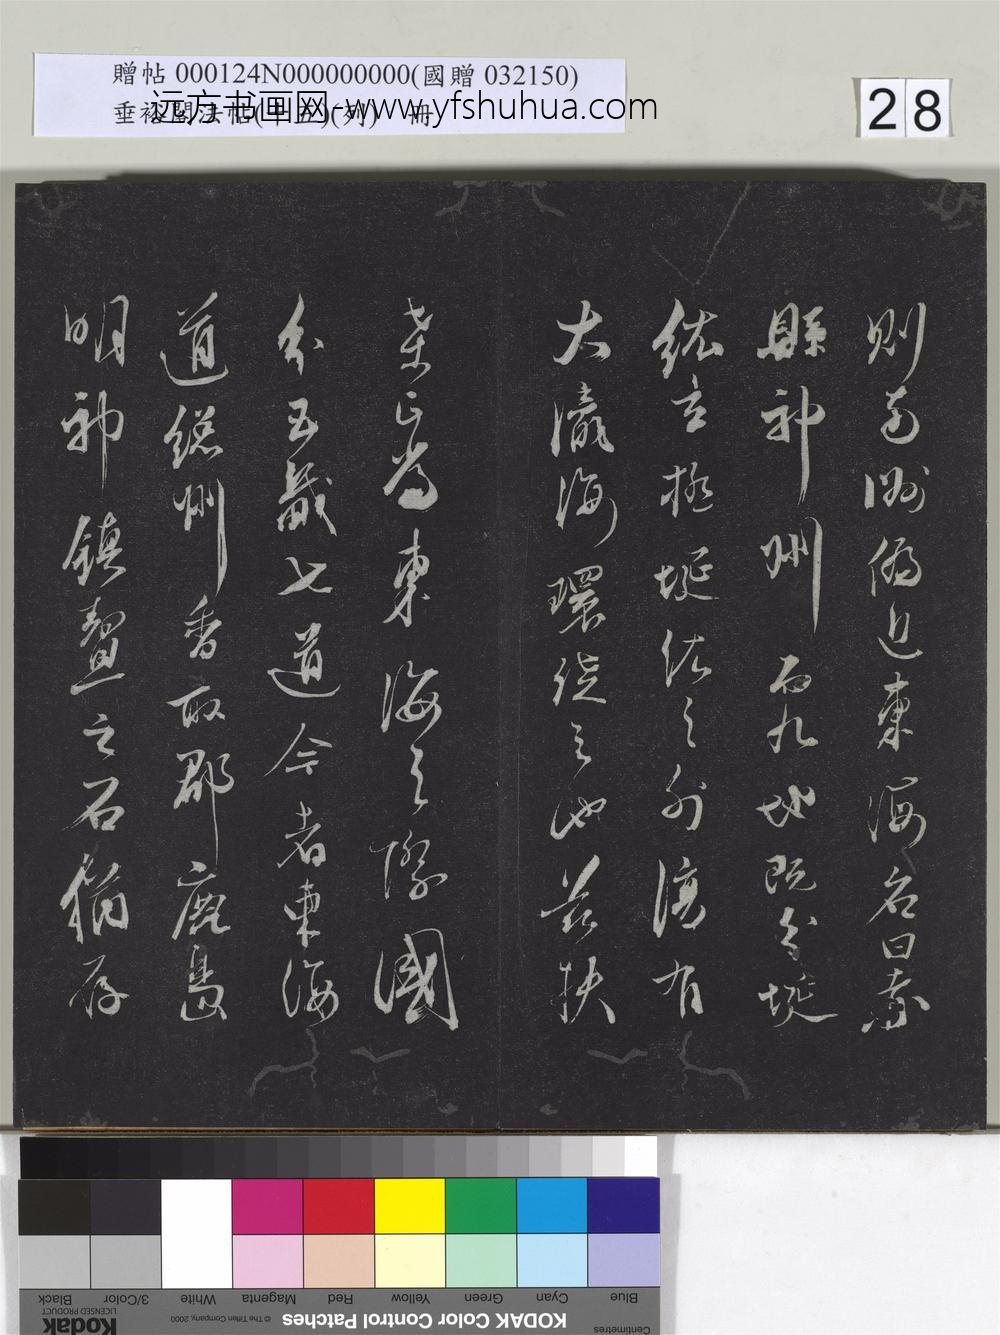 贈帖 000124N000000000(國贈 032150)
法帖(列) 冊
远方书画网-www.yfshuhua.com
28
則南洲偏近東海名曰赤
縣神州而九地既分埏
紘立極埏之外復有
大瀛海環繞之也若扶
桑正當東海之際國
分五畿七道今者東海
道總州香取郡鹿島
明神鎮之石猶存
Blue Cyan Green Yellow Red Magenta White 3/Color Black
Centimetres
KODAK Color Control Patches
© The Tiffen Company, 2000
Kodak
LICENSED PRODUCT